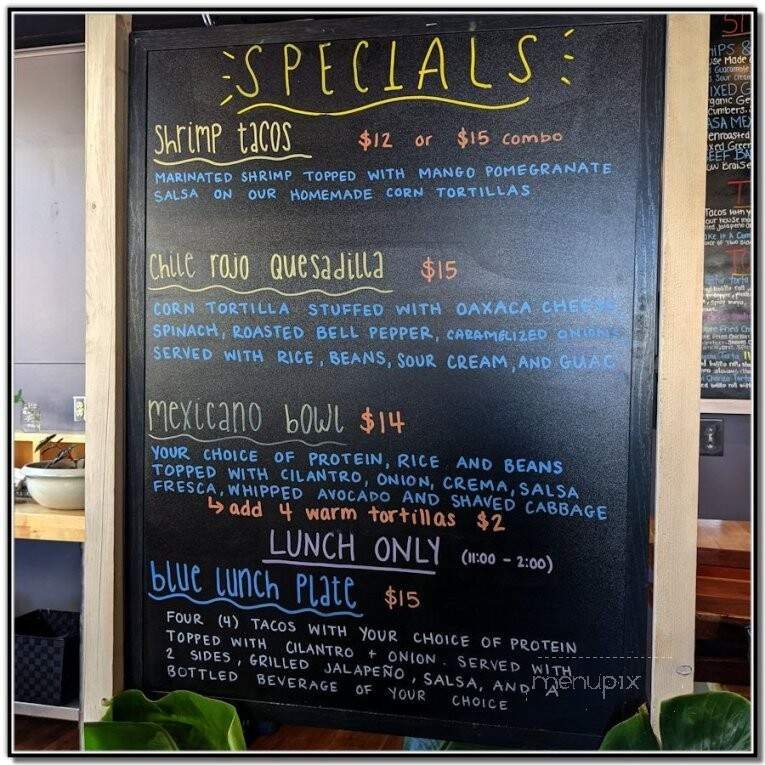 SPECIALS
shrimp tacos $12 or $15 combo
MARINATED SHRIMP TOPPED WITH MANGO POMEGRANATE
SALSA ON OUR HOMEMADE CORN TORTILLAS
chile rojo quesadilla $15
CORN TORTILLA STUFFED WITH OAXACA CHEESE,
SPINACH, ROASTED BELL PEPPER, CARAMELIZED ONIONS
SERVED WITH RICE, BEANS, SOUR CREAM, AND GUAC
mexicano bowl $14
YOUR CHOICE OF PROTEIN, RICE AND BEANS
TOPPED WITH CILANTRO, ONION, CREMA, SALSA
FRESCA, WHIPPED AVOCADO AND SHAVED CABBAGE
↳ add 4 warm tortillas $2
LUNCH ONLY (11:00 - 2:00)
blue lunch plate $15
FOUR (4) TACOS WITH YOUR CHOICE OF PROTEIN
TOPPED WITH CILANTRO + ONION. SERVED WITH
2 SIDES, GRILLED JALAPEÑO, SALSA, AND A
BOTTLED BEVERAGE OF YOUR CHOICE
menupix